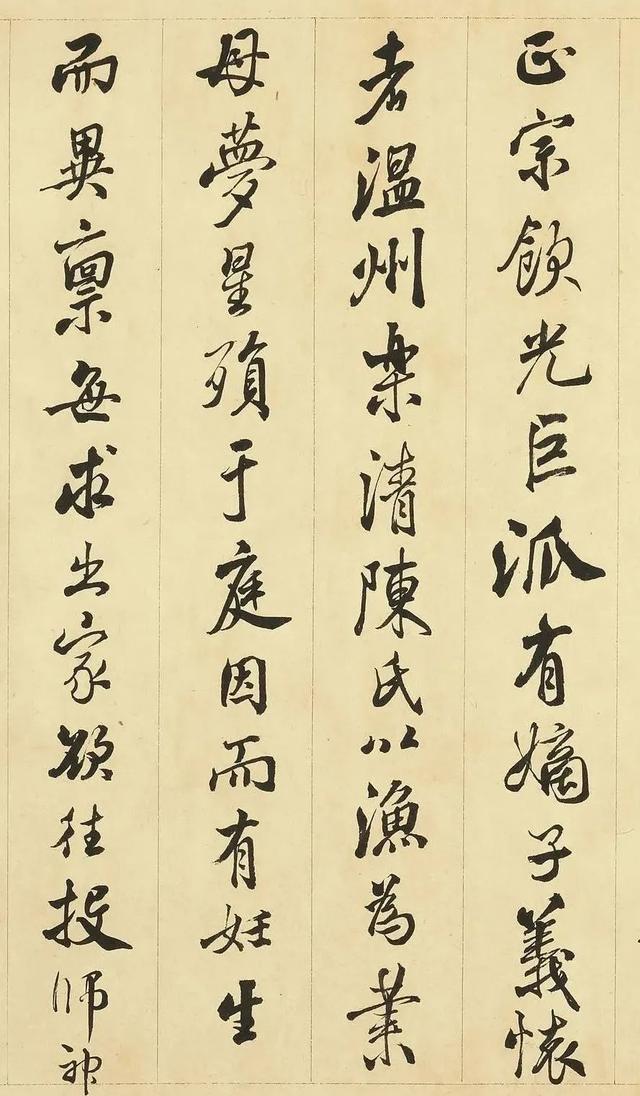 正宗飲光巨派有嫡子義懷
者温州樂清陳氏以漁為業
母夢星殞于庭因而有妊生
而異禀每求出家欲往投師神